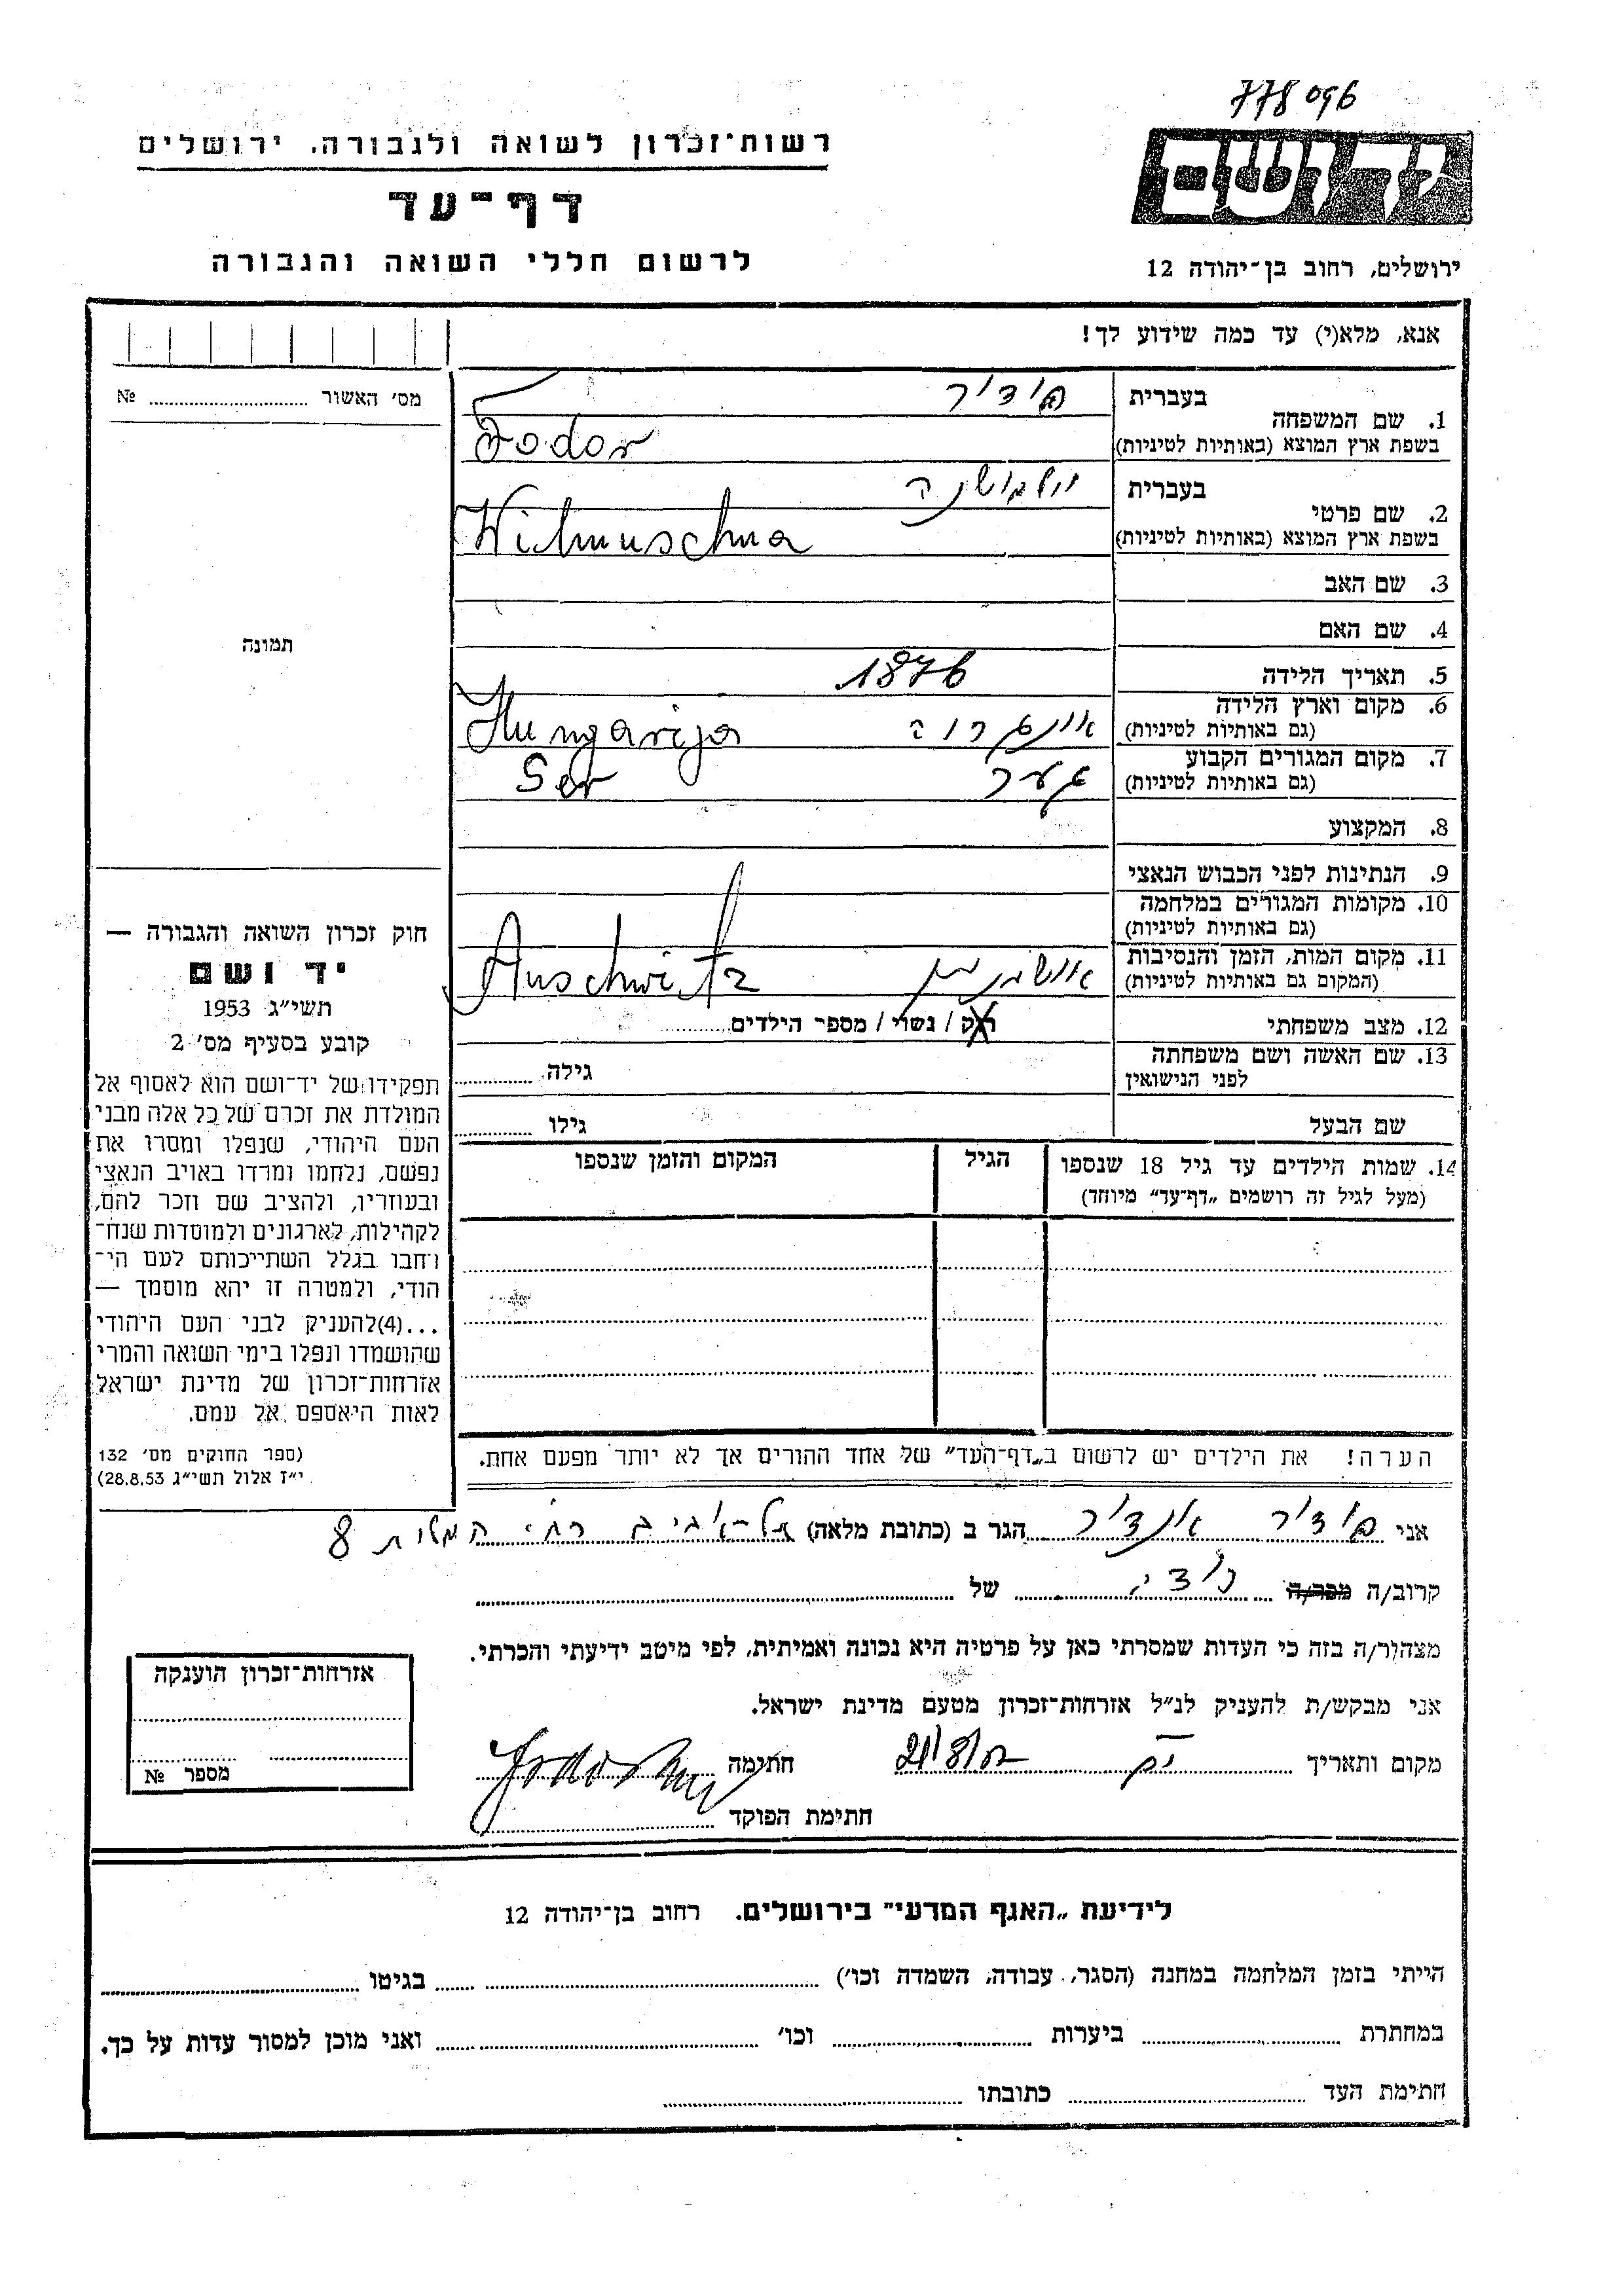 778096
יד ושם
רשות־זכרון לשואה ולגבורה, ירושלים
דף־עד
לרשום חללי השואה והגבורה
ירושלים, רחוב בן־יהודה 12
אנא, מלא(י) עד כמה שידוע לך!
מס׳ האשור .......... №
1. שם המשפחה
בעברית פודור
בשפת ארץ המוצא (באותיות לטיניות) Fodor
2. שם פרטי
בעברית
בשפת ארץ המוצא (באותיות לטיניות)
3. שם האב
4. שם האם
5. תאריך הלידה 1876
6. מקום וארץ הלידה
(גם באותיות לטיניות) Hungarija
7. מקום המגורים הקבוע
(גם באותיות לטיניות)
8. המקצוע
9. הנתינות לפני הכבוש הנאצי
10. מקומות המגורים במלחמה
(גם באותיות לטיניות)
11. מקום המות, הזמן והנסיבות
(המקום גם באותיות לטיניות) Auschwitz
12. מצב משפחתי רוק / נשוי / מספר הילדים..........
13. שם האשה ושם משפחתה
לפני הנישואין גילה ..........
שם הבעל גילו ..........
תמונה
חוק זכרון השואה והגבורה —
יד ושם
תשי״ג 1953
קובע בסעיף מס׳ 2
תפקידו של יד־ושם הוא לאסוף אל
המולדת את זכרם של כל אלה מבני
העם היהודי, שנפלו ומסרו את
נפשם, נלחמו ומרדו באויב הנאצי
ובעוזריו, ולהציב שם וזכר להם,
לקהילות, לארגונים ולמוסדות שנח־
רחבו בגלל השתייכותם לעם הי־
הודי, ולמטרה זו יהא מוסמך —
...(4)להעניק לבני העם היהודי
שהושמדו ונפלו בימי השואה והמרי
אזרחות־זכרון של מדינת ישראל
לאות היאספם אל עמם.
(ספר החוקים מס׳ 132
י״ז אלול תשי״ג 28.8.53)
14. שמות הילדים עד גיל 18 שנספו
(מעל לגיל זה רושמים „דף־עד״ מיוחד)
הגיל
המקום והזמן שנספו
הערה! את הילדים יש לרשום ב„דף־העד״ של אחד ההורים אך לא יותר מפעם אחת.
אני פודור אנדור הגר ב (כתובת מלאה) תל־אביב רח׳ 8
קרוב/ה מכר/ה .......... של ..........
מצהיר/ה בזה כי העדות שמסרתי כאן על פרטיה היא נכונה ואמיתית, לפי מיטב ידיעתי והכרתי.
אני מבקש/ת להעניק לנ״ל אזרחות־זכרון מטעם מדינת ישראל.
מקום ותאריך .......... חתימה
חתימת הפוקד ..........
אזרחות־זכרון הוענקה
מספר №
לידיעת „האגף המדעי״ בירושלים. רחוב בן־יהודה 12
הייתי בזמן המלחמה במחנה (הסגר, עבודה, השמדה וכו׳) .......... בגיטו ..........
במחתרת .......... ביערות .......... וכו׳ .......... ואני מוכן למסור עדות על כך.
חתימת העד .......... כתובתו ..........